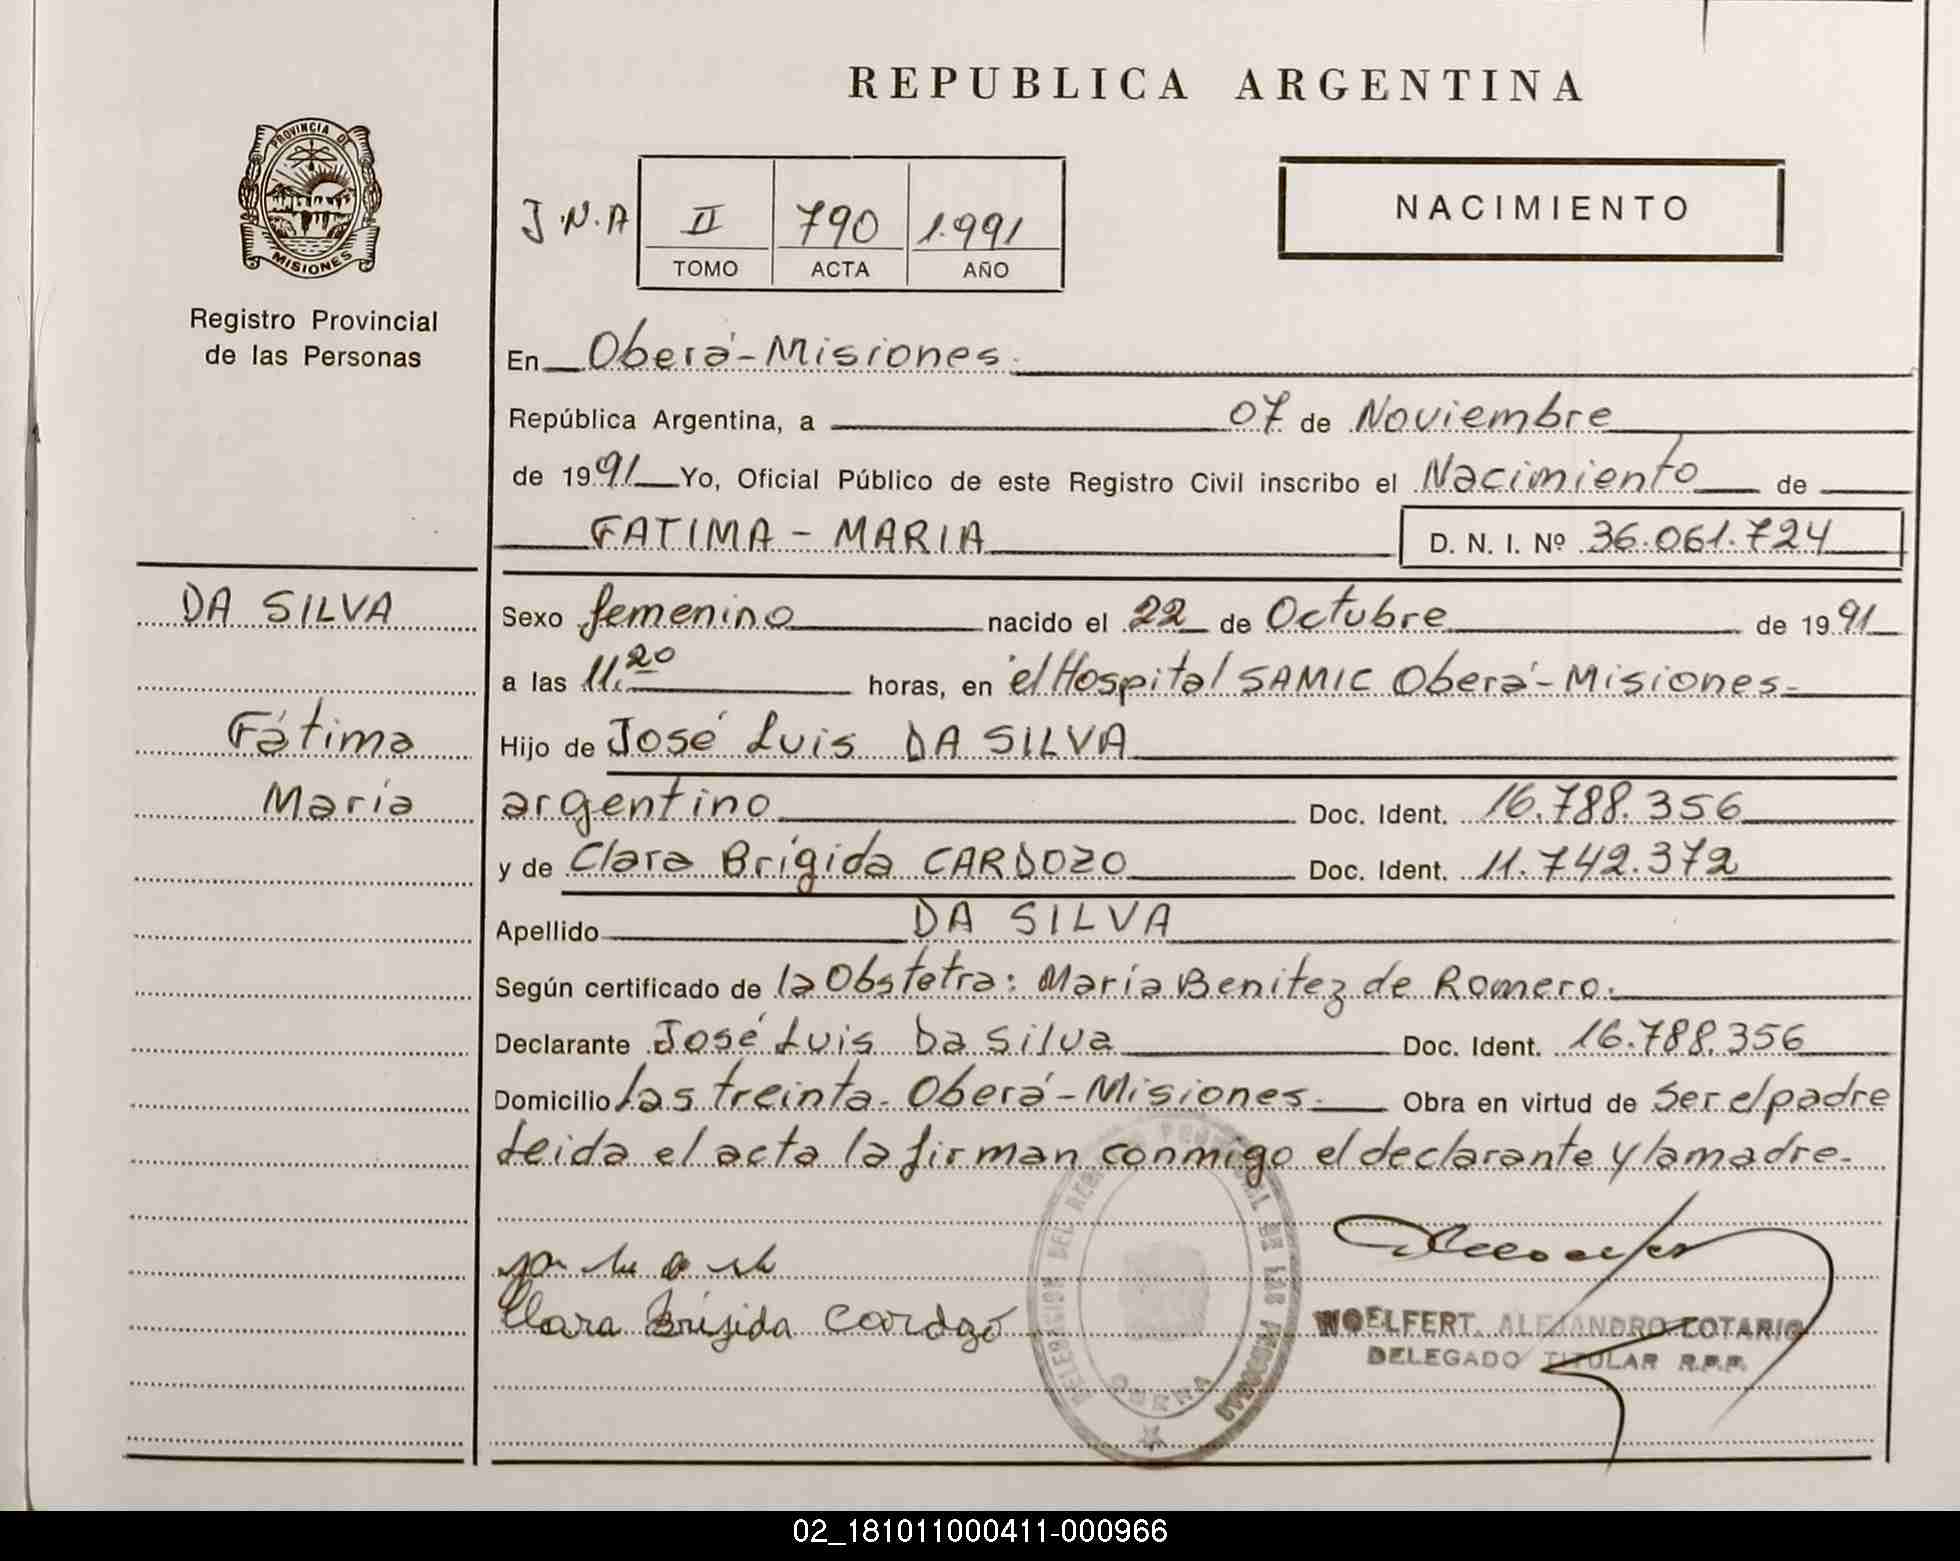 REPUBLICA ARGENTINA
PROVINCIA DE
MISIONES
Registro Provincial
de las Personas
J.N.A II 790 1.991
TOMO ACTA AÑO
NACIMIENTO
En Oberá-Misiones.
República Argentina, a 07 de Noviembre
de 1991 Yo, Oficial Público de este Registro Civil inscribo el Nacimiento de
FATIMA - MARIA D. N. I. Nº 36.061.724
DA SILVA
Fátima
María
Sexo femenino nacido el 22 de Octubre de 1991
a las 11.20 horas, en el Hospital SAMIC Oberá-Misiones-
Hijo de José Luis DA SILVA
argentino Doc. Ident. 16.788.356
y de Clara Brígida CARDOZO Doc. Ident. 11.742.372
Apellido DA SILVA
Según certificado de la Obstetra: María Benitez de Romero.
Declarante José Luis Da Silva Doc. Ident. 16.788.356
Domicilio Las treinta. Oberá-Misiones. Obra en virtud de ser el padre
Leida el acta la firman conmigo el declarante y la madre.
Clara Brijida Cardozo
DELEGACION DEL REGISTRO PROVINCIAL DE LAS PERSONAS
OBERA
WOELFERT, ALEJANDRO LOTARIO
DELEGADO TITULAR R.P.P.
02_181011000411-000966